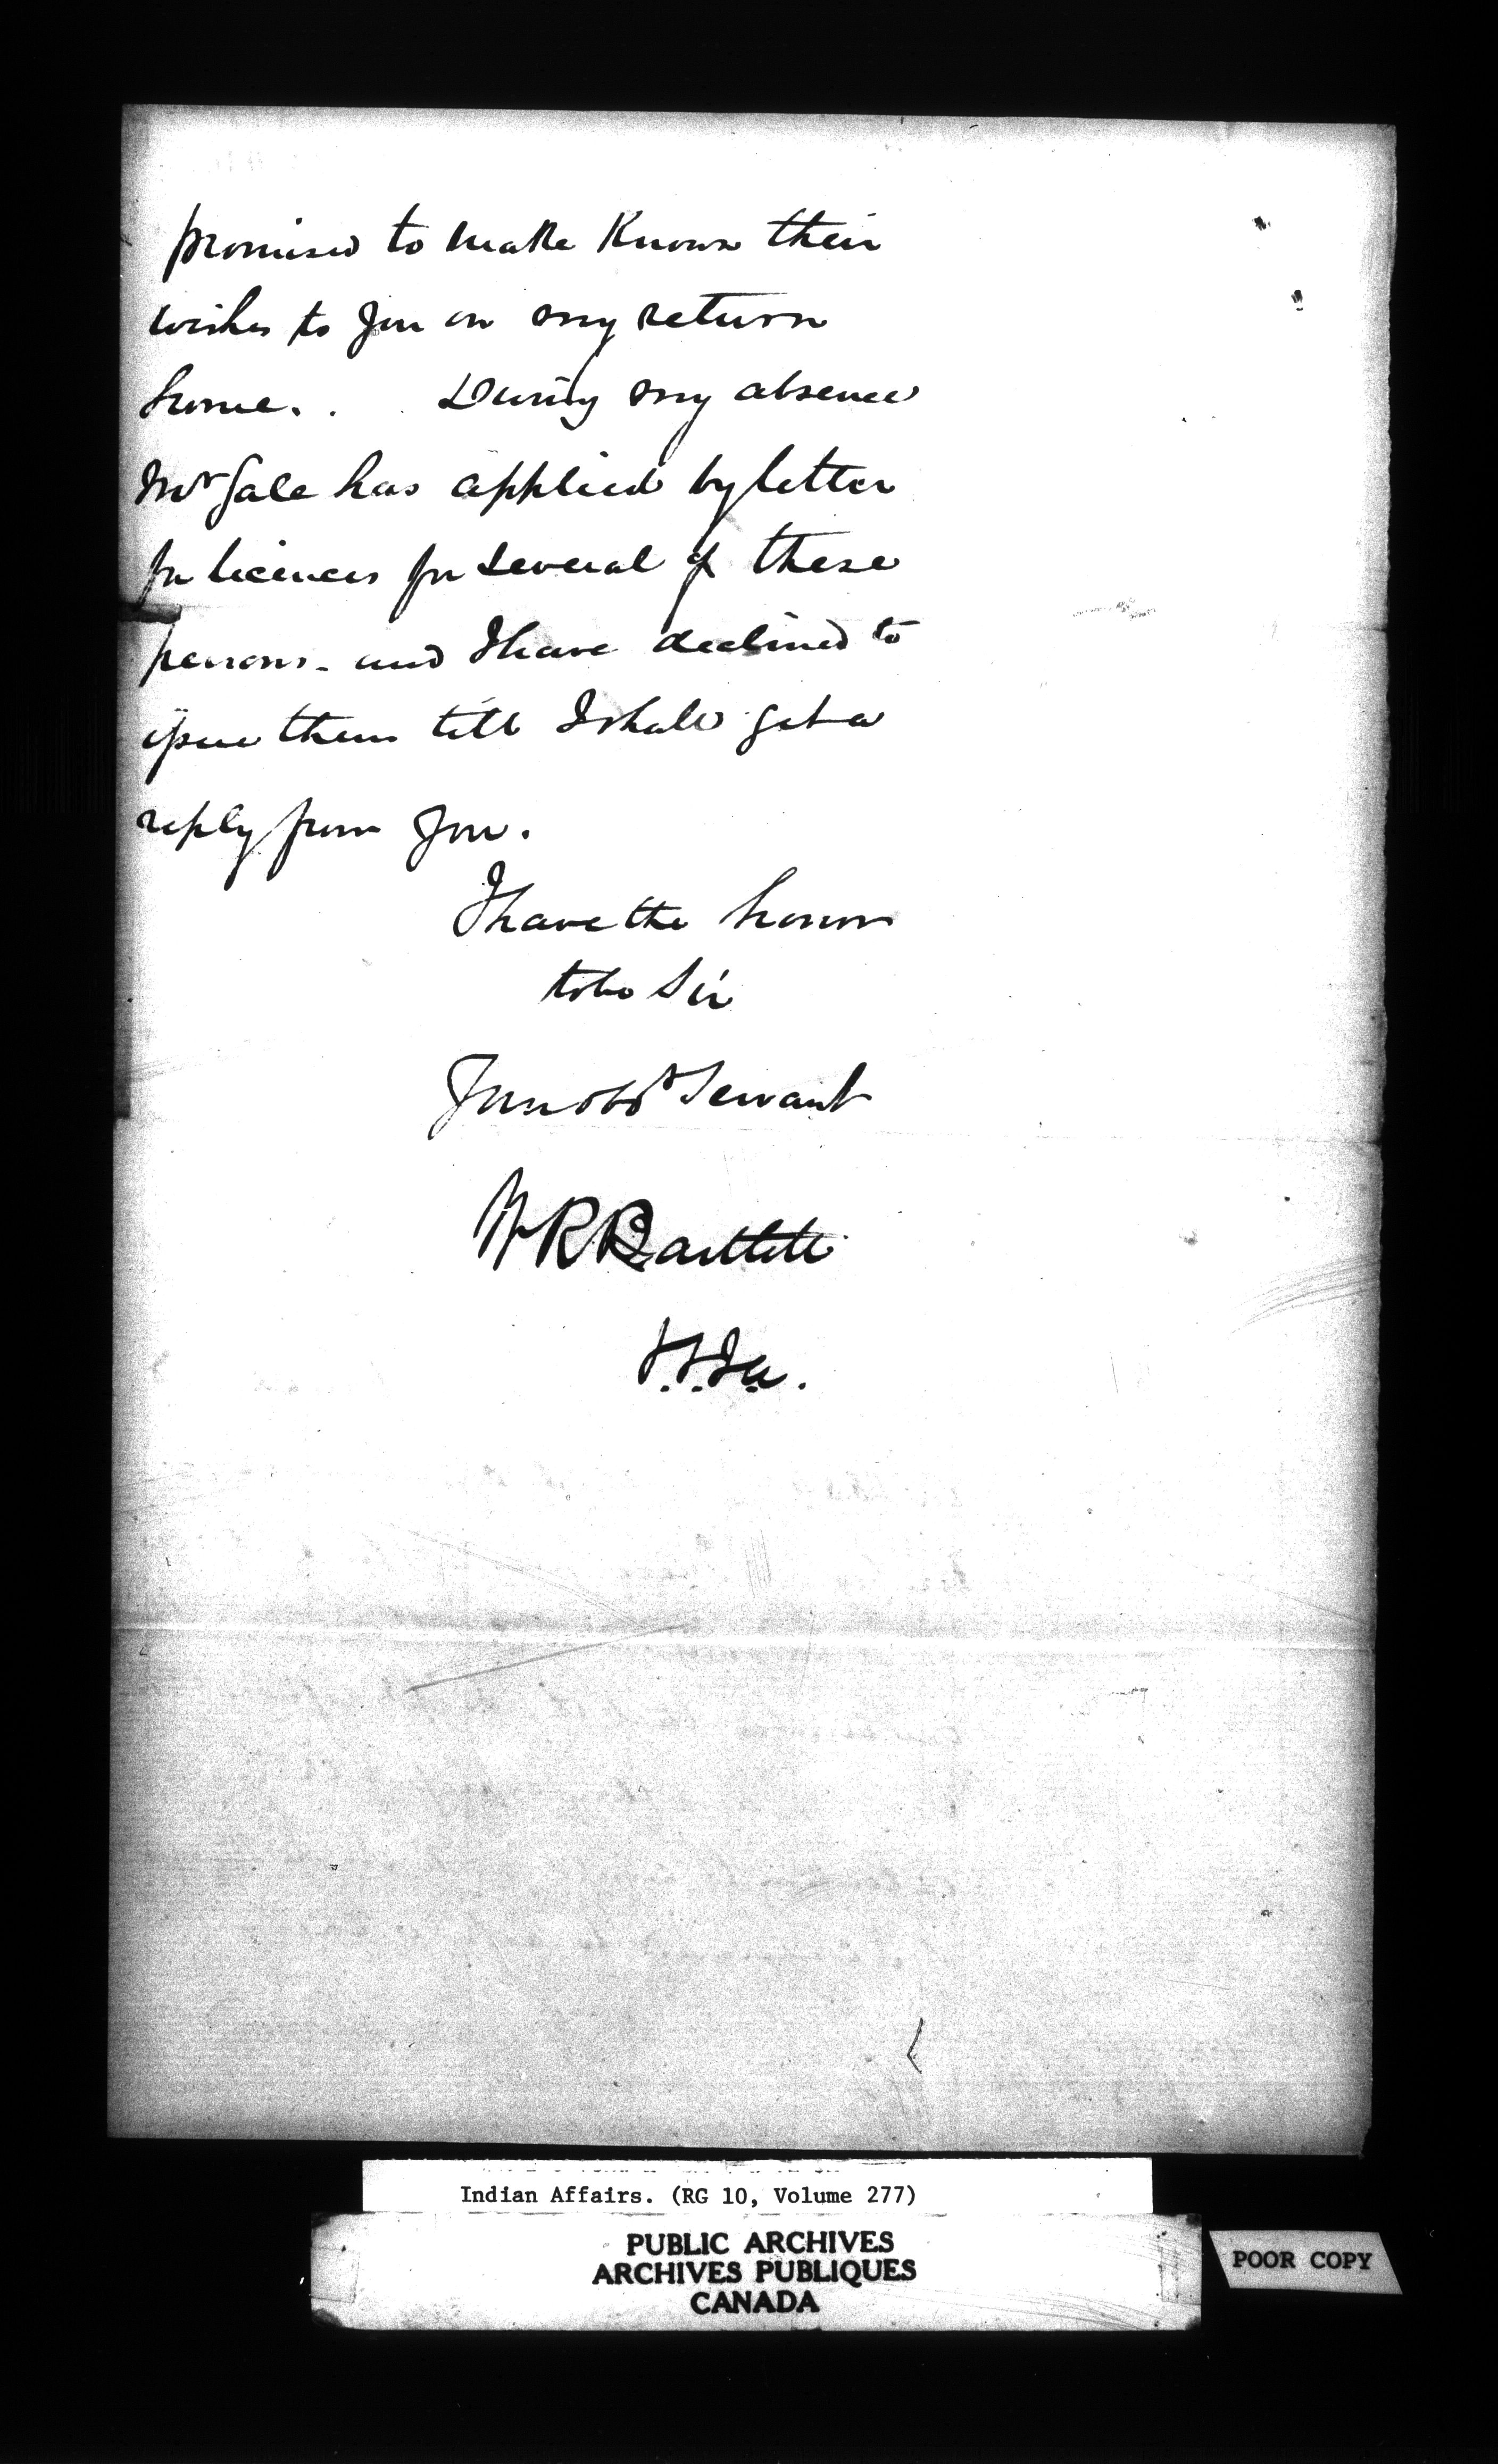 promised to make Known their
wishes to you on my return
home. . During my absence
Mr Gale has applied by letter
for licences for several of these
persons - and I have declined to
issue them till I shall get a
reply from you.
I have the honor
to be Sir
Your obdt Servant
W R Bartlett
Indian Affairs. (RG 10, Volume 277)
PUBLIC ARCHIVES
ARCHIVES PUBLIQUES
CANADA
POOR COPY